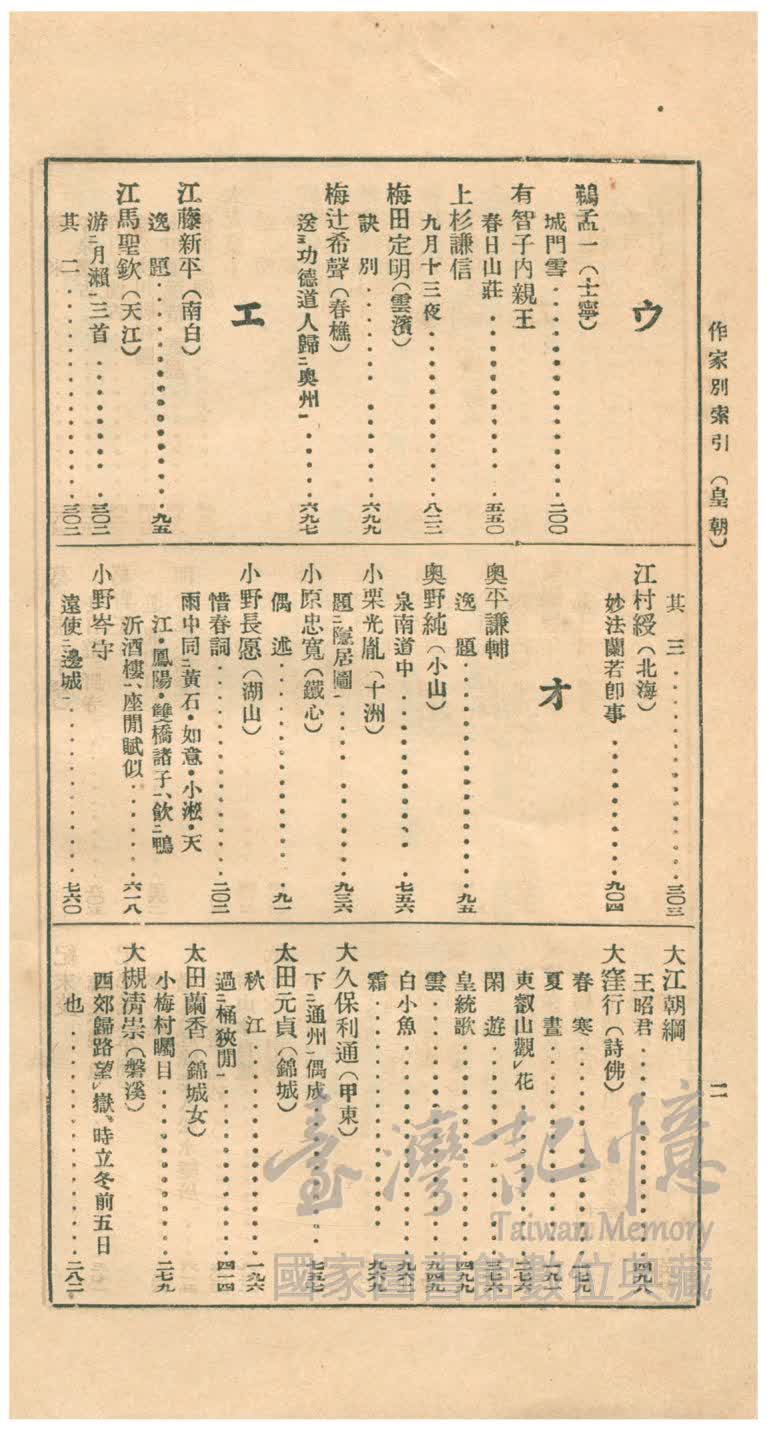 作家別索引 (皇朝)
二
ウ
鵜孟一(士寧)
城門雪・・・・・・・・・・二〇〇
有智子內親王
春日山莊・・・・・・・・・・五五〇
上杉謙信
九月十三夜・・・・・・・・・・八二二
梅田定明(雲濱)
訣別・・・・・・・・・・六九九
梅辻希聲(春樵)
送三功德道人歸二奧州一・・・・・・六九七
エ
江藤新平(南白)
逸題・・・・・・・・・・九五
江馬聖欽(天江)
游二月瀨一三首・・・・・・・・・・三〇二
其二・・・・・・・・・・三〇二
其三・・・・・・・・・・三〇三
江村綬(北海)
妙法蘭若卽事・・・・・・・・・・九〇四
オ
奧平謙輔
逸題・・・・・・・・・・九五
奧野純(小山)
泉南道中・・・・・・・・・・七五六
小栗光胤(十洲)
題二隱居圖一・・・・・・・・・・九三六
小原忠寬(鐵心)
偶述・・・・・・・・・・九一
小野長愿(湖山)
惜春詞・・・・・・・・・・二〇二
雨中同二黃石・如意・小淞・天
江・鳳陽・雙橋諸子一、飮二鴨
沂酒樓一、座閒賦似・・・・・・六一八
小野岑守
遠使二邊城一・・・・・・・・・・七六〇
大江朝綱
王昭君・・・・・・・・・・四九八
大窪行(詩佛)
春寒・・・・・・・・・・一七九
夏晝・・・・・・・・・・一九一
東叡山觀レ花・・・・・・・・・・二七六
閑遊・・・・・・・・・・三七六
皇統歌・・・・・・・・・・四九九
雲・・・・・・・・・・九四九
白小魚・・・・・・・・・・九六一
霜・・・・・・・・・・九六九
大久保利通(甲東)
下二通州一偶成・・・・・・・・・・七五七
太田元貞(錦城)
秋江・・・・・・・・・・一九六
過二桶狹閒一・・・・・・・・・・四一四
太田蘭香(錦城女)
小梅村矚日・・・・・・・・・・二七九
大槻淸崇(磐溪)
西郊歸路望レ嶽、時立冬前五日
也・・・・・・・・・・二八二
臺灣記憶
Taiwan Memory
國家圖書館數位典藏